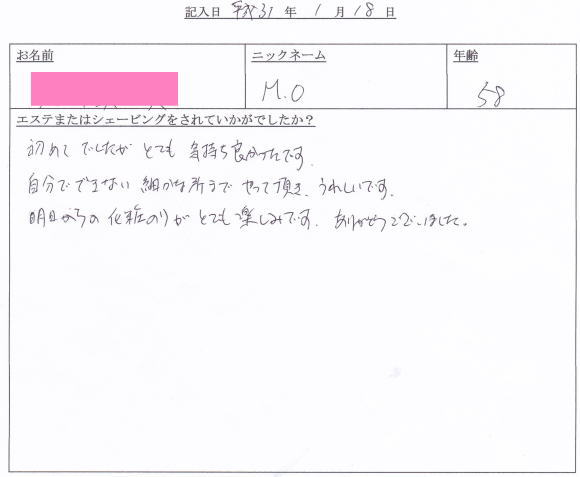 記入日 平成31年 1月18日
お名前 ニックネーム 年齢
M.O 58
エステまたはシェービングをされていかがでしたか？
初めてでしたがとても気持ち良かったです.
自分でできない細かな所までやって頂き、うれしいです.
明日からの化粧のりがとても楽しみです. ありがとうございました。